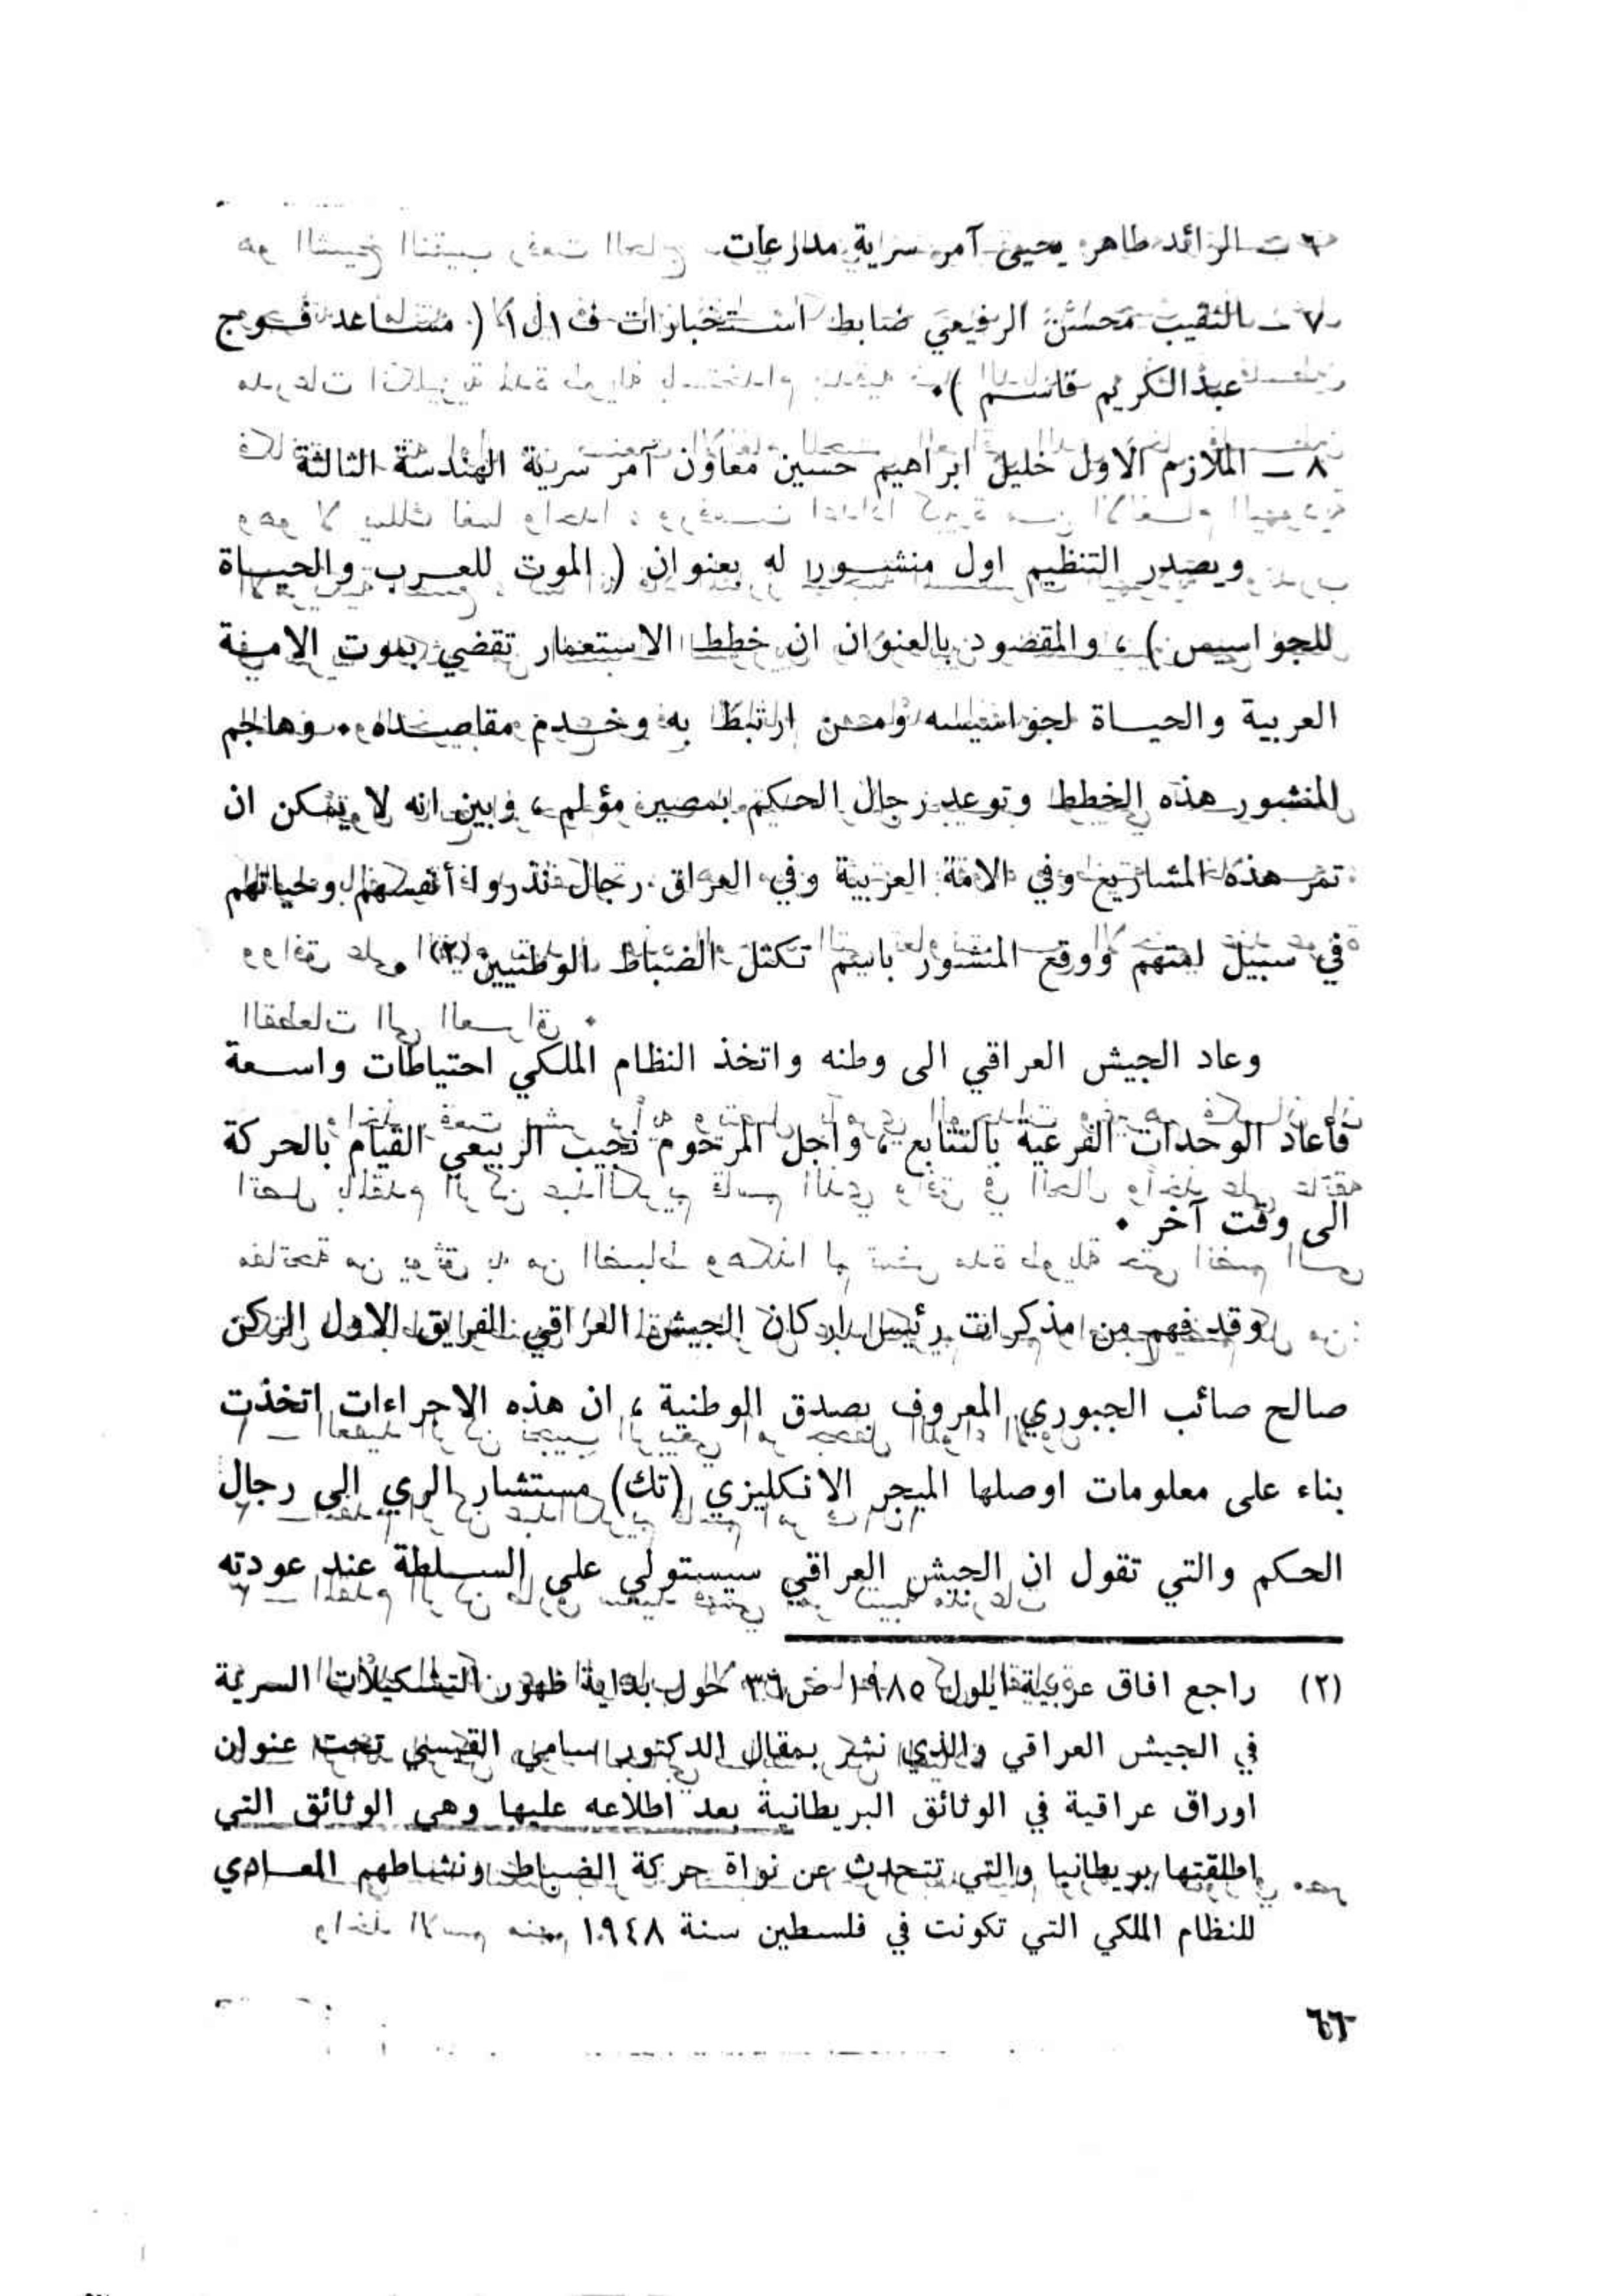 ٦ ــ الرائد طاهر يحيى آمر سرية مدرعات
٧ ــ النقيب محسن الرفيعي ضابط استخبارات ف١ل١ ( مساعد فوج
عبدالكريم قاسم ) ٠
٨ ــ الملازم الاول خليل ابراهيم حسين معاون آمر سرية الهندسة الثالثة
ويصدر التنظيم اول منشور له بعنوان ( الموت للعرب والحياة
للجواسيس ) ، والمقصود بالعنوان ان خطط الاستعمار تقضي بموت الامة
العربية والحياة لجواسيسه ومن ارتبط به وخدم مقاصده ٠ وهاجم
المنشور هذه الخطط وتوعد رجال الحكم بمصير مؤلم ، وبين انه لا يمكن ان
تمر هذه المشاريع وفي الامة العربية وفي العراق رجال نذروا أنفسهم وحياتهم
في سبيل امتهم ووقع المنشور باسم تكتل الضباط الوطنيين(٢) ٠
وعاد الجيش العراقي الى وطنه واتخذ النظام الملكي احتياطات واسعة
فأعاد الوحدات الفرعية بالتتابع ، وأجل المرحوم نجيب الربيعي القيام بالحركة
الى وقت آخر ٠
وقد فهم من مذكرات رئيس اركان الجيش العراقي الفريق الاول الركن
صالح صائب الجبوري المعروف بصدق الوطنية ، ان هذه الاجراءات اتخذت
بناء على معلومات اوصلها الميجر الانكليزي (تك) مستشار الري الى رجال
الحكم والتي تقول ان الجيش العراقي سيستولي على السلطة عند عودته
(٢) راجع افاق عربية ايلول ١٩٨٥ ص٣٦ حول بداية ظهور التشكيلات السرية
في الجيش العراقي والذي نشر بمقال الدكتور سامي القيسي تحت عنوان
اوراق عراقية في الوثائق البريطانية بعد اطلاعه عليها وهي الوثائق التي
اطلقتها بريطانيا والتي تتحدث عن نواة حركة الضباط ونشاطهم المعادي
للنظام الملكي التي تكونت في فلسطين سنة ١٩٤٨ ٠
٦٦